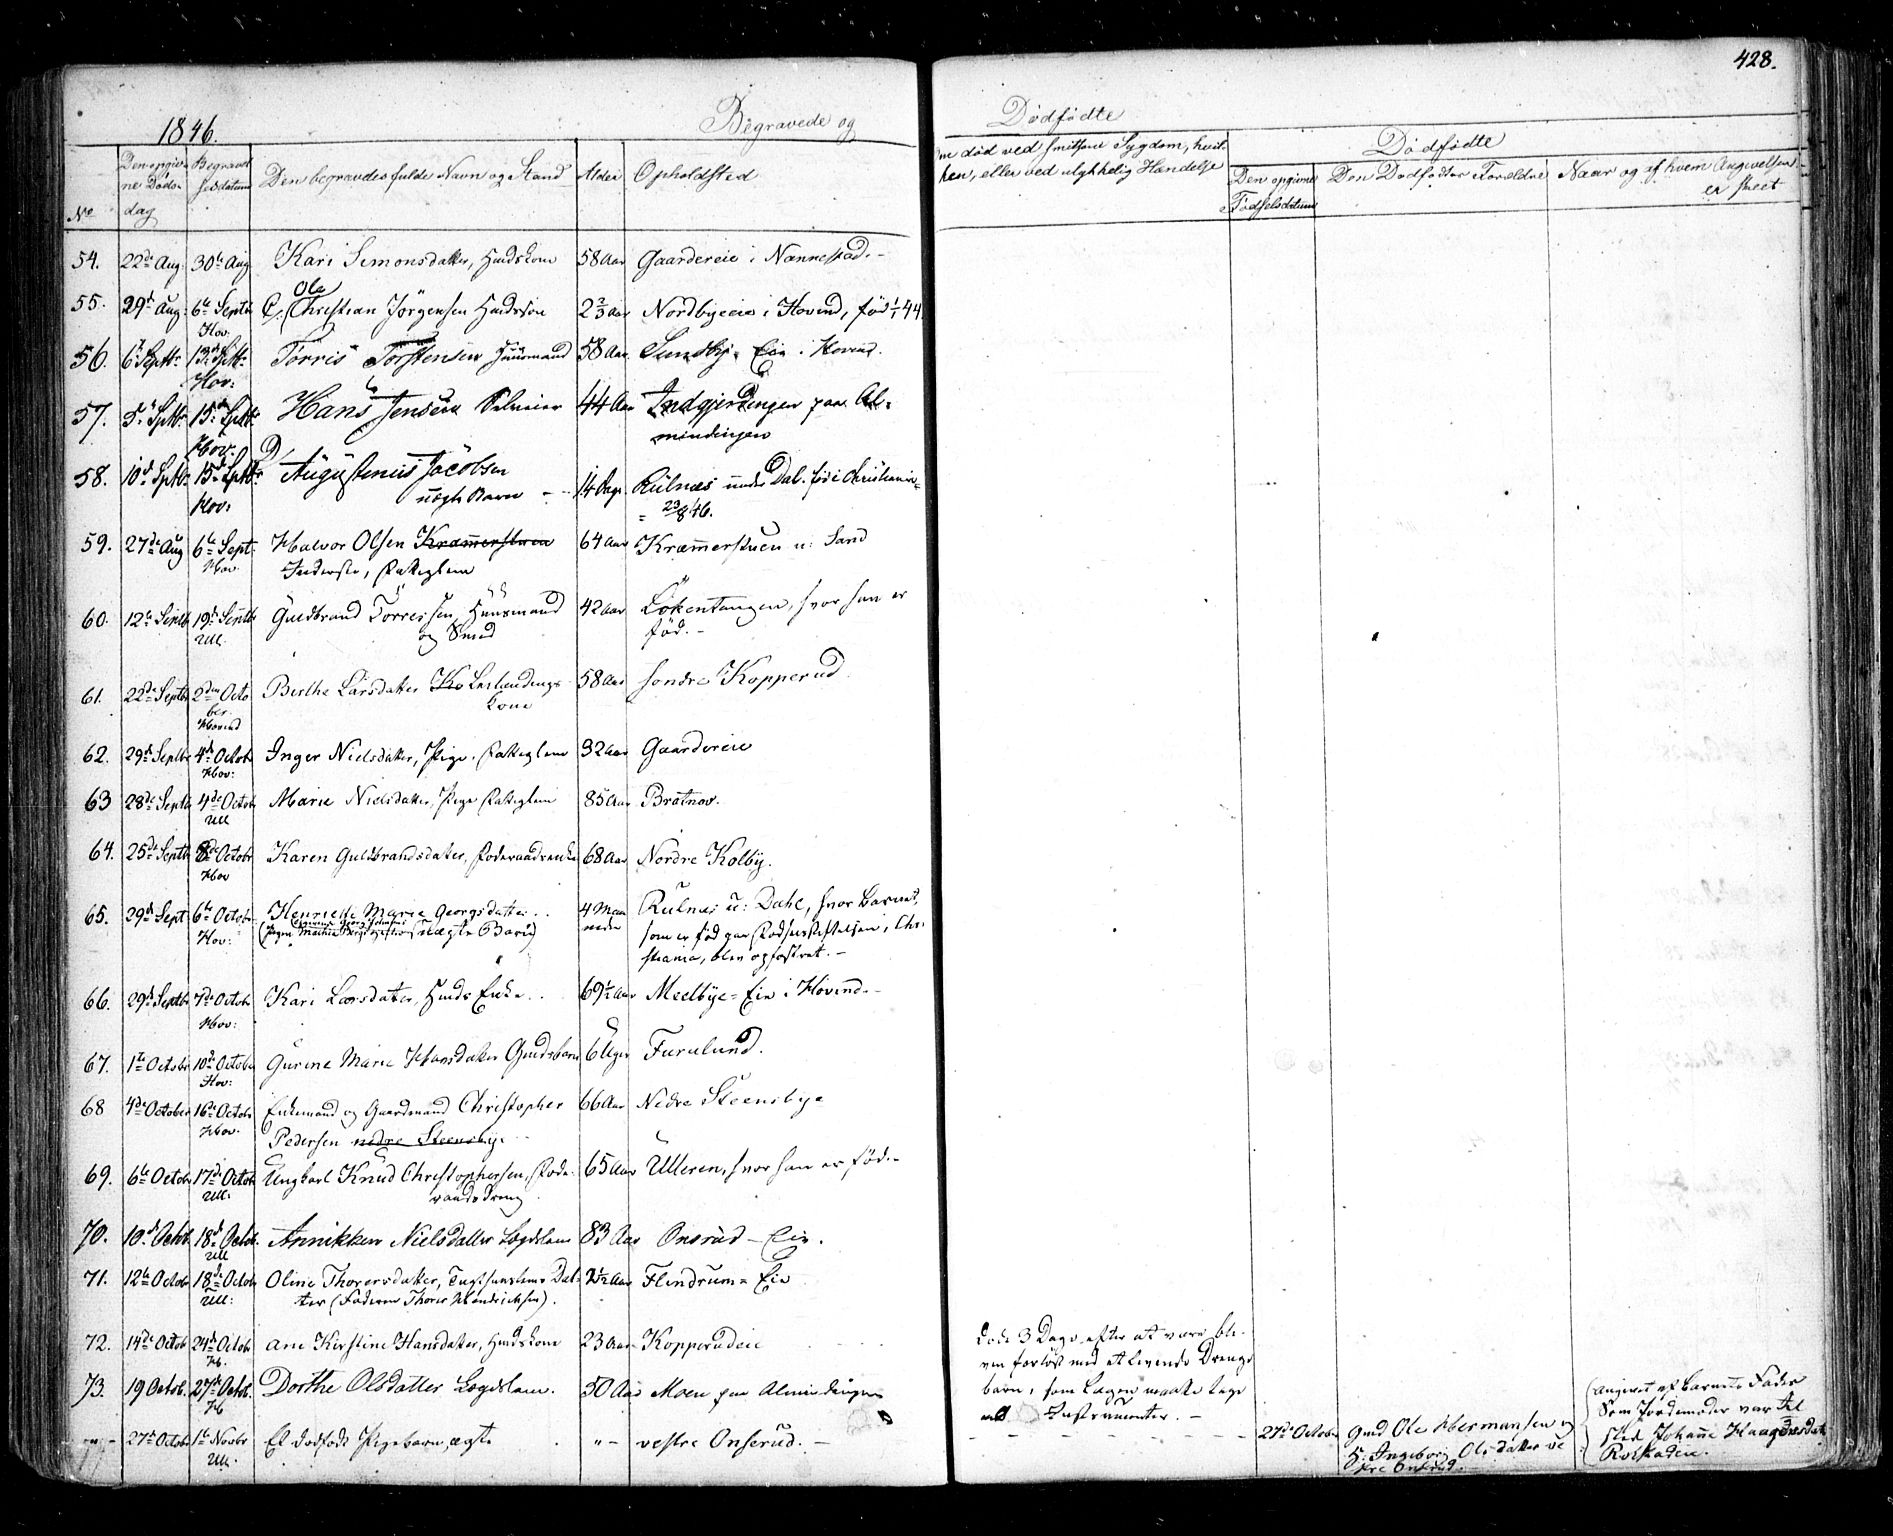 428.
1846.
Begravede og
Dødfødte
No
Den opgiv-
ne Døds-
dag
Begravel
sesdatum
Den begravedes fulde Navn og Stand
Alder
Opholdsted
Om død ved smitsom Sygdom, hvil-
ken, eller ved ulykkelig Hændelse
Dødfødte
Den opgivne
Fødselsdatum
Den Dødfødtes Forældre
Naar og af hvem Angivelsen
er skeet
54. 22de Aug: 30te Aug Kari Simonsdatter, Huuskone 58 Aar Gaardereie i Nannestad. -
55. 29d Aug: 6te Septbr Hov. Ole Christian Jörgensen Huusson 2 2/3 aar Nordbyeeie i Hovind, född 1/1 44
56. 6te Septbr 13de Septbr Hov: Torris Torstensen Huusmand 58 Aar Sundby- Eie i Hovind.
57. 5te Sptbr 15de Sptbr Hov. Hans Jensen Selveier 44 Aar Indgjerdingen paa Al-
mindingen
58. 10d Sptbr 15de Sptbr Hov: Augustenus Jacobsen
uægte Barn - - 14 Dage Rülnæs under Dal. föd i Christiania
23/8 46.
59. 27de Aug 6te Sept. Hov. Halvor Olsen Kræmmerstuen 64 Aar Kræmmerstuen u: Sand
Inderste, Fattiglem
60. 12te Septbr 19d Septbr Ull. Guldbrand Torressen, Huusmand 42 aar Lökentangen, hvor han er
og Smed föd. -
61. 22de Septbr 2den Octo
ber
Hovind Birthe Larsdatter Ko Leilændings 58 Aar söndre Kopperud
Kone
62. 29d Septbr 4d Octobr Hov: Inger Nielsdatter, Pige, Fattiglem 32 aar Gaardereie
63 28de Septbr 4de Octobr Ull Marie Nielsdatter, Pige Fattiglem 85 Aar Bratnov.
64. 25de Septbr 8de Octobr Hov Karen Guldbrandsdatter, Föderaadsenke 68 Aar Nordre Kolby.
65. 29d Sept 6te Octobr Hov: Henriette Marie Georgsdatter . . 4 Maa
neder Rulnæs u: Dahl, hvor Barnet,
uægte Barn) som er föd paa Födselsstiftelsen i Chri
stiania, blev opfostret. -
66. 29d Septbr 7de Octobr Hov: Kari Larsdatter, Huuds Enke . . 69 1/2 Aar Meelbye- Eie i Hovind. -
67. 1te October 10de October Hov: Gurine Marie Hansdatter Gmdsbarn 6 Uger Furulund.
68 4de October 16de Octobr Hov. Enkemand og Gaardmand Christopher 66 Aar Nedre Steensbye
Pedersen nedre Steensbye.
69. 6te Octobr 17de Octobr Ull: Ungkarl Knud Christophersen, Föde- 65 Aar Ulleren, hvor han er föd. -
raadsdreng
70. 10d Octbr. 18d Octbr. Ull Annikken Nielsdatter Lægdslem 83 Aar Onsrud - Eie.
71. 12te Octobr 18de Octobr Ull: Oline Thorersdatter, Dat-
ter (Faderen Thorer Hendricksen). 2 1/2 Aar Flendrum- Eie
72. 14de Octobr 24d Octobr H. Ane Kirstine Hansdatter, Huuskone 23 Aar Kopperudeie
döde 3 Dage efter at være ble-
ven forlöst med et levende Drenge
barn, som Lægen maatte tage
med Instrumenter. -
73. 19 Octob. 27de Octob. H Dorthe Olsdatter Lægdslem. 50 Aar Moen paa Almindingen
- " - 27d Octobr 1te Novbr Ull. Et dödfödt Pigebarn, ægte " - vestre Onserud. -
27de October
Gmd Ole Hermansen og
H: Ingeborg Olsdatter ve
stre Onsrud.
Angivet af Barnets Fader
Som Jordemoder var til
sted Johanne Haagensdat